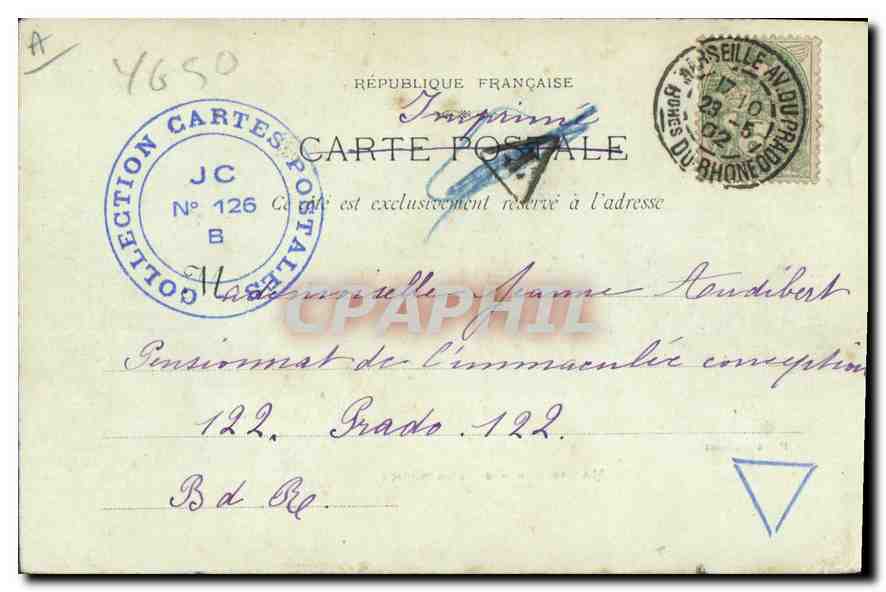 A
YGSO
RÉPUBLIQUE FRANÇAISE
Imprimé
CARTE POSTALE
Ce côté est exclusivement réservé à l'adresse
COLLECTION CARTES POSTALES
JC
N° 126
B
MARSEILLE AV. DU PRADO
17 10
23 -5
02
BCHES DU RHONE
Mademoiselle Jeanne Audibert
Pensionnat de l'immaculée conception
122. Prado. 122.
B d R
CPAPHIL